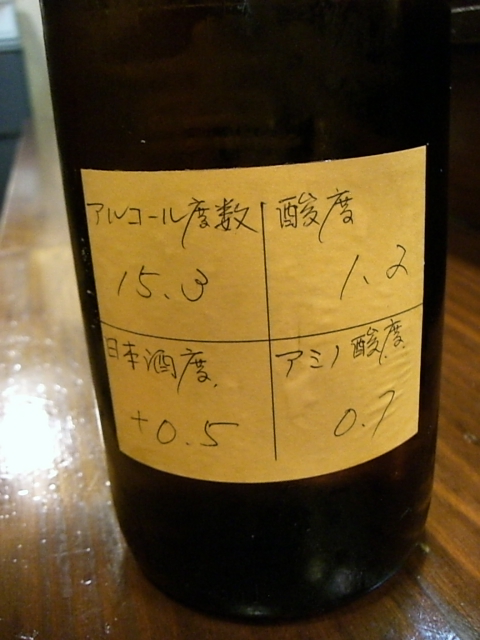 アルコール度数
15.3
酸度
1.2
日本酒度
+0.5
アミノ酸度
0.7